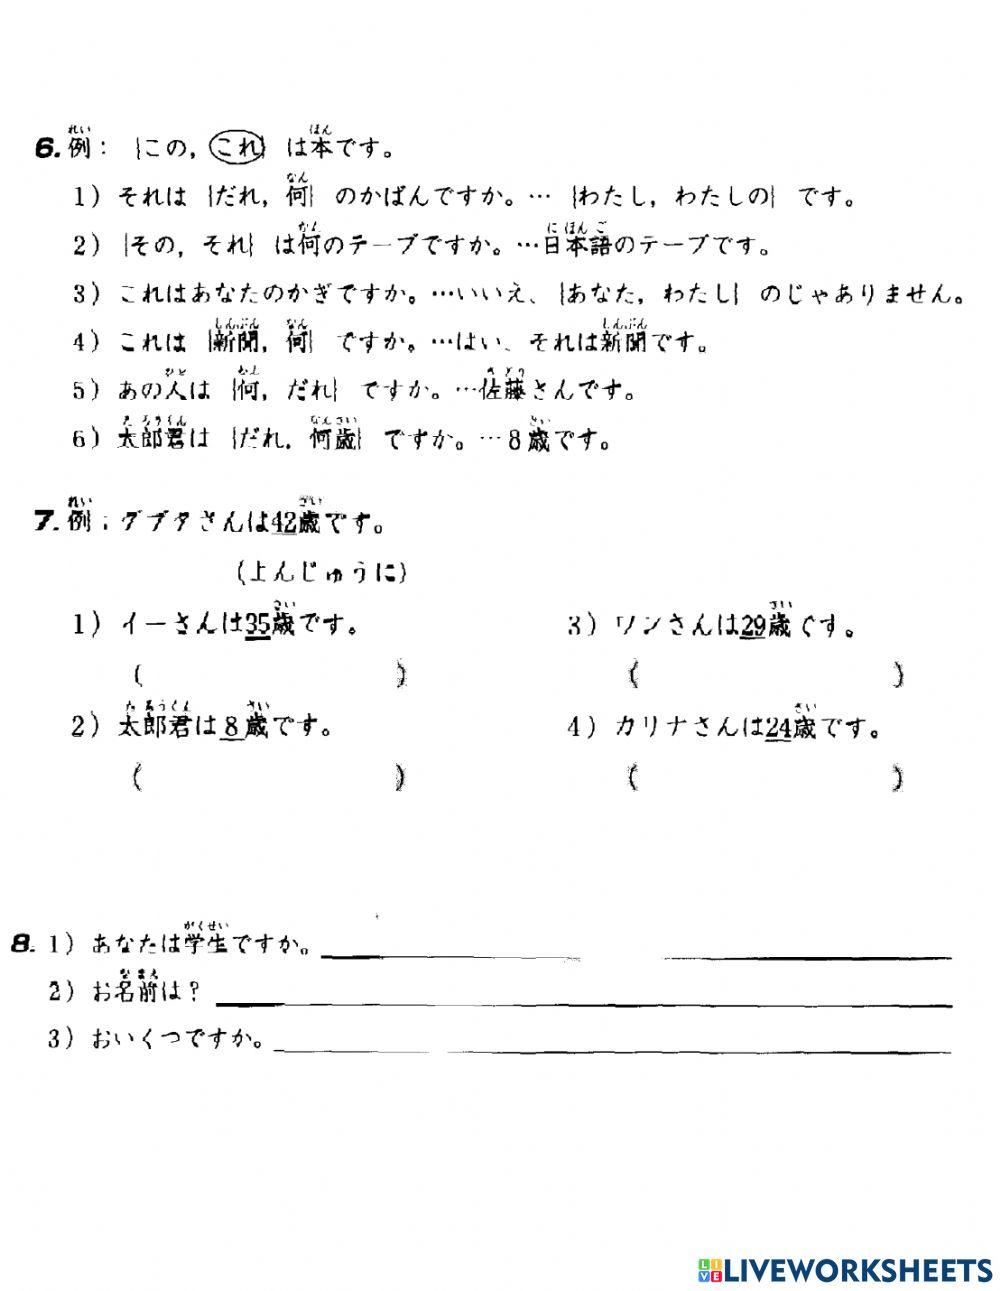 6. 例： {この, これ} は本です。
1) それは {だれ, 何} のかばんですか。… {わたし, わたしの} です。
2) {その, それ} は何のテープですか。…日本語のテープです。
3) これはあなたのかぎですか。…いいえ、{あなた, わたし} のじゃありません。
4) これは {新聞, 何} ですか。…はい、それは新聞です。
5) あの人は {何, だれ} ですか。…佐藤さんです。
6) 太郎君は {だれ, 何歳} ですか。…8歳です。
7. 例：グプタさんは42歳です。
(よんじゅうに)
1) イーさんは35歳です。
( )
2) 太郎君は 8 歳です。
( )
3) ワンさんは29歳です。
( )
4) カリナさんは24歳です。
( )
8. 1) あなたは学生ですか。
2) お名前は？
3) おいくつですか。
LIVEWORKSHEETS